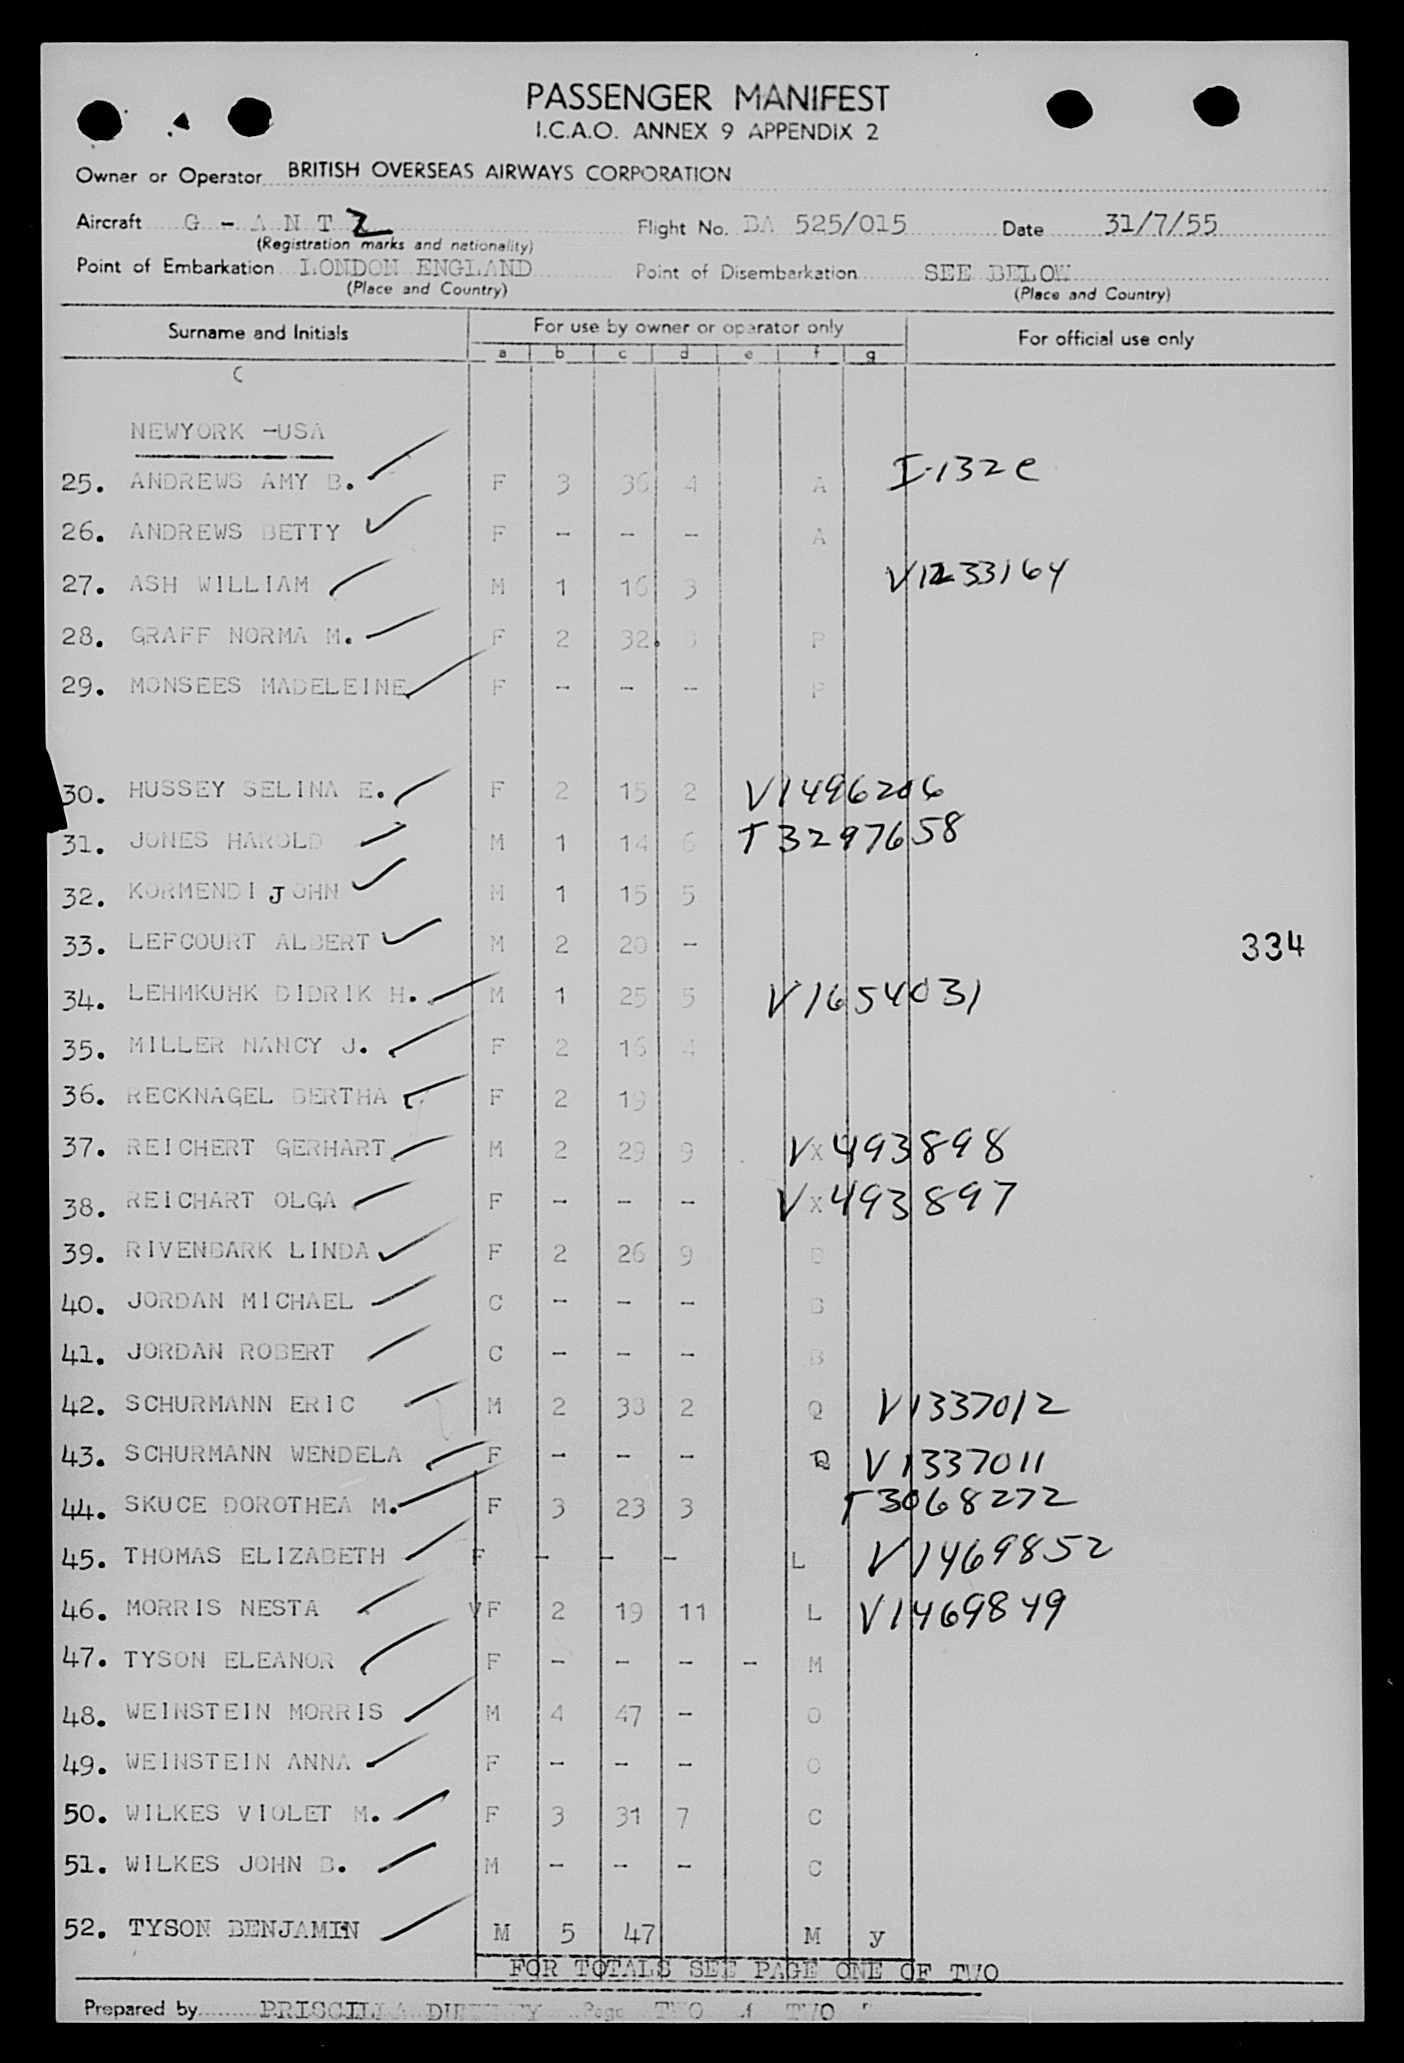 PASSENGER MANIFEST
I.C.A.O. ANNEX 9 APPENDIX 2
Owner or Operator BRITISH OVERSEAS AIRWAYS CORPORATION
Aircraft G - A N T Z Flight No. BA 525/015 Date 31/7/55
(Registration marks and nationality)
Point of Embarkation LONDON ENGLAND Point of Disembarkation SEE BELOW
(Place and Country) (Place and Country)
Surname and Initials For use by owner or operator only For official use only
a b c d e f g
NEWYORK -USA
25. ANDREWS AMY B. F 3 36 4 A I-132c
26. ANDREWS BETTY F - - - A
27. ASH WILLIAM M 1 16 3 V1233164
28. GRAFF NORMA M. F 2 32. 8 P
29. MONSEES MADELEINE F - - - P
30. HUSSEY SELINA E. F 2 15 2 V1496206
31. JONES HAROLD M 1 14 6 T3297658
32. KORMENDI JOHN M 1 15 5
33. LEFCOURT ALBERT M 2 20 - 334
34. LEHMKUHK DIDRIK H. M 1 25 5 V1654031
35. MILLER NANCY J. F 2 16 4
36. RECKNAGEL BERTHA F 2 19
37. REICHERT GERHART M 2 29 9 X V493898
38. REICHART OLGA F - - - X V493897
39. RIVENBARK LINDA F 2 26 9 B
40. JORDAN MICHAEL C - - - B
41. JORDAN ROBERT C - - - B
42. SCHURMANN ERIC M 2 38 2 Q V1337012
43. SCHURMANN WENDELA F - - - Q V1337011
44. SKUCE DOROTHEA M. F 3 23 3 T3068272
45. THOMAS ELIZABETH F - - - L V1469852
46. MORRIS NESTA F 2 19 11 L V1469849
47. TYSON ELEANOR F - - - - M
48. WEINSTEIN MORRIS M 4 47 - O
49. WEINSTEIN ANNA F - - - O
50. WILKES VIOLET M. F 3 31 7 C
51. WILKES JOHN B. M - - - C
52. TYSON BENJAMIN M 5 47 M y
FOR TOTALS SEE PAGE ONE OF TWO
Prepared by PRISCILLA Page TWO of TWO